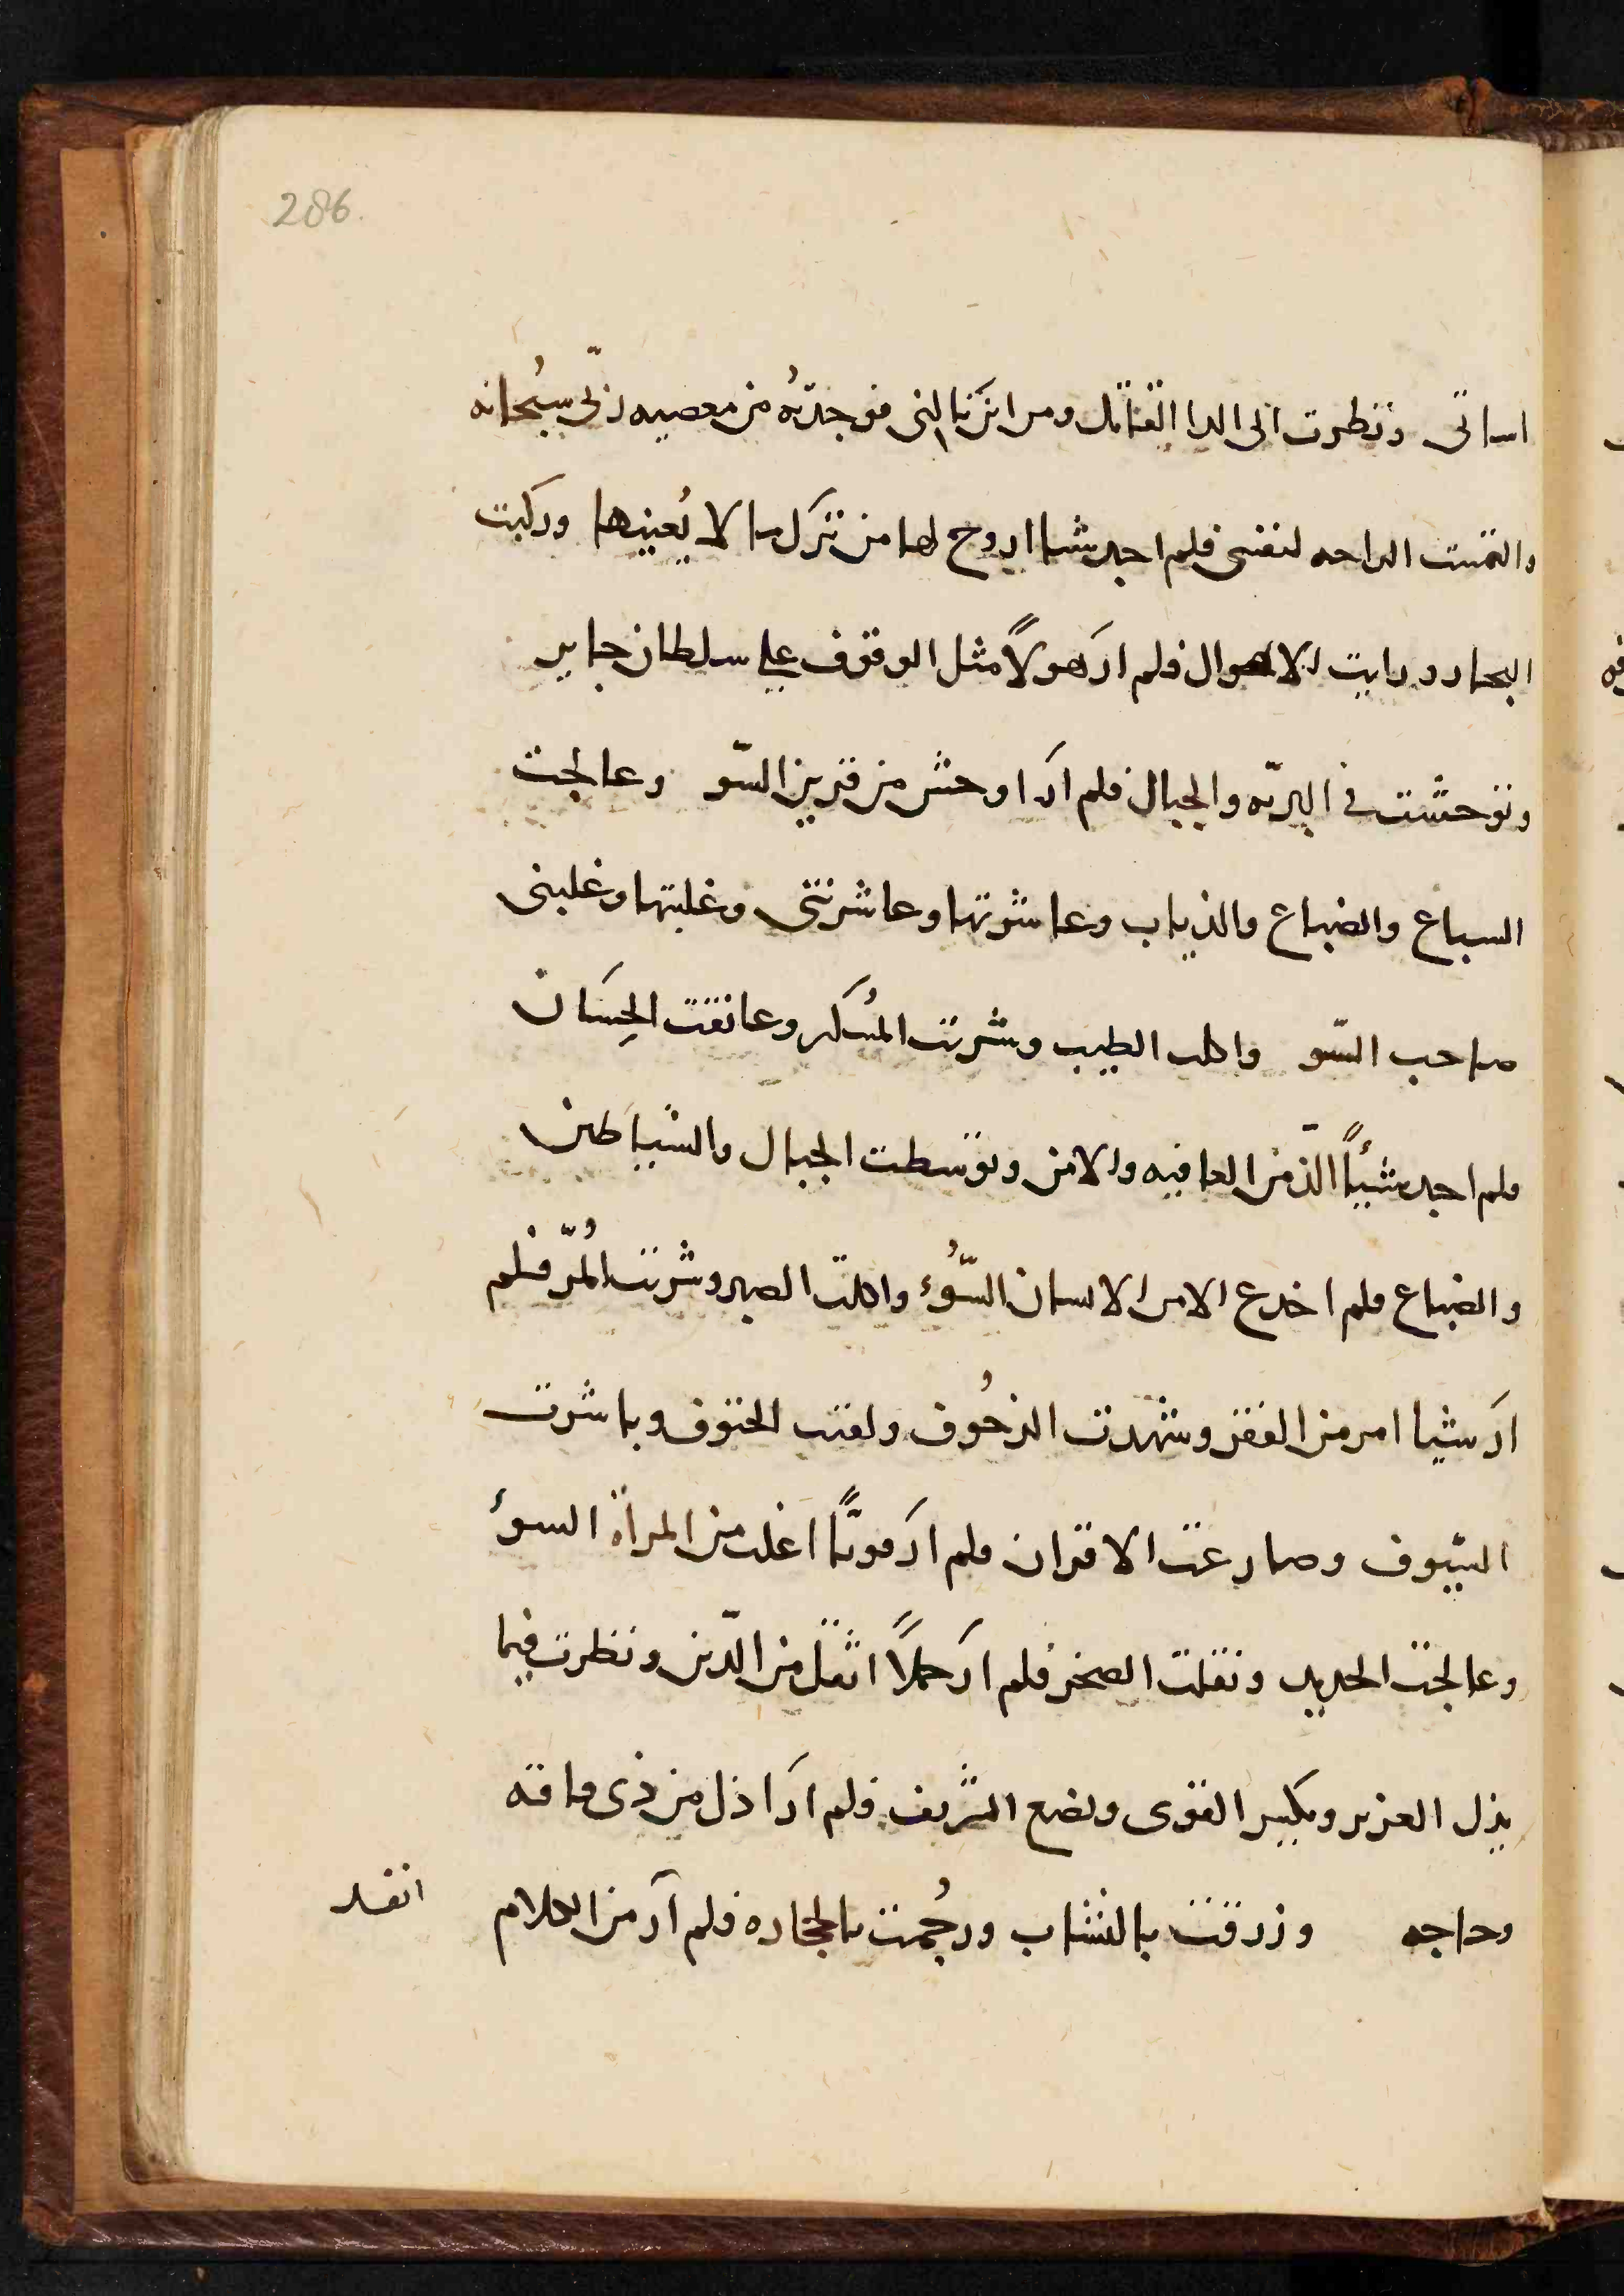 286.
اساتى ونظرت الى الدا القاتل ومن اين ياتينى فوجدته من معصيه ربّى سبحانه
والتمست الراحه لنفسى فلم اجد شيا اروح لها من ترك ما لا يُعنيها وركبت
البحار ورايت الاهوال فلم ارَ هولاً مثل الوقوف على سلطان جاير
وتوحشت فى البريّه والجبال فلم ارَ اوحش من قرين السّو وعالجت
السباع والضباع والذياب وعاشرتها وعاشرتنى وغلبتها وغلبنى
صاحب السّو واكلت الطيب وشربت المُسكر وعانقت الحِسَان
فلم اجد شيئاً الذّ من العافيه والامن وتوسطت الجبال والشياطين
والضباع فلم اخدع الامن الانسان السّوُء واكلت الصبر وشربت المُرّ فلم
ارَ شيا امر من الفقر وشهدت الزحُوف ولقيت الحتوف وباشرت
السّيوف وصارعت الاقران فلم ارَ قوياً اغلب من المراة السوء
وعالجت الحديد ونقلت الصخر فلم ارَ حملاً اثقل من الدّين ونظرت فيما
يذل العزيز ويكسر القوى ويضع الشريف فلم ارَ اذل من ذى فاقه
وحاجه وزرقت بالنشاب ورجُمت بالحجاره فلم ارَ من الكلام
انفد